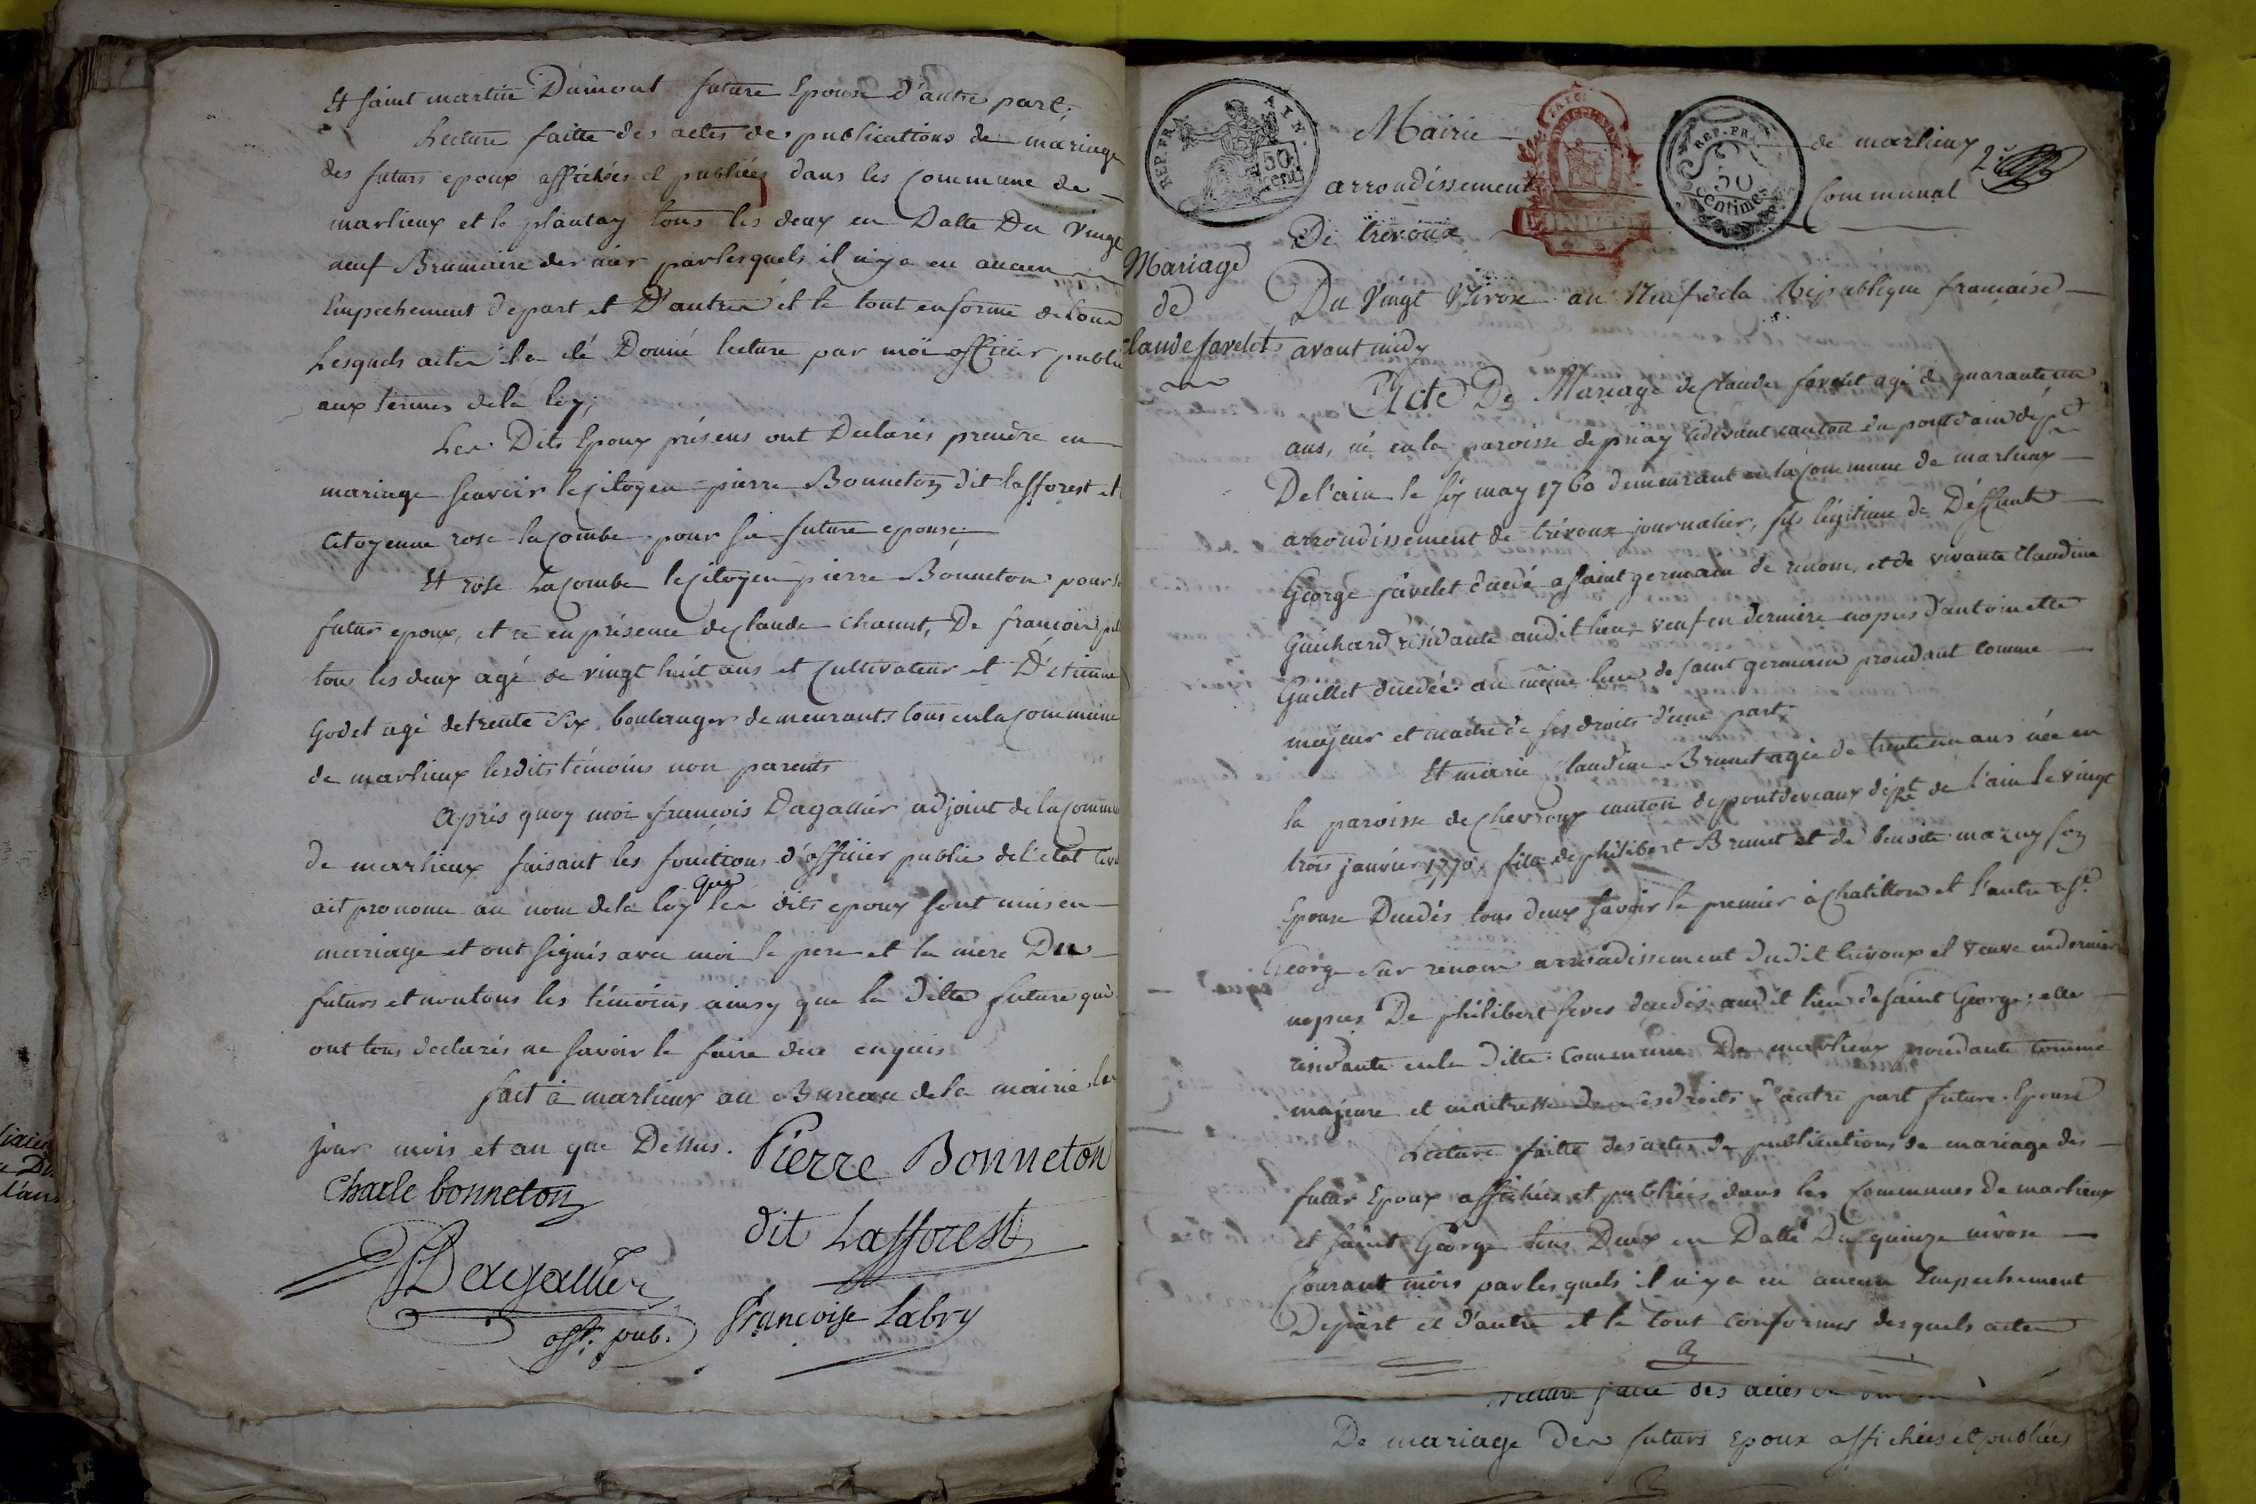 Et saint martin Dumont future Epouse d'autre part;
Lecture faitte des actes des publications de mariage
des futurs epoux affichées et publiées dans les Commune de
marlieux et le plantay tous les deux en Datte Du vingt
neuf Brumaire dernier par lesquels il n'y a eu aucun
Empechement de part et D'autre et le tout en forme
Lesquels actes a été Donné lecture par moi officier public
aux termes de la loy;
Les Dits Epoux présens ont Declarés prendre en
mariage scavoir le Citoyen pierre Bonneton dit lafforest et
Citoyenne rose lacombe pour sa future epouse;
Et rose Lacombe le Citoyen pierre Bonneton pour
futur epoux, et ce en présence de Claude Chanut, De francois
tous les deux agé de vingt huit ans et Cultivateur et D'étienne
Godet agé de trente six boulanger demeurants tous en la Commune
de marlieux lesdits témoins non parents
Après quoy moi francois Dagallier adjoint de la Commune
de marlieux faisant les fonctions d'officier public de l'état
ait prononcé au nom de la loy que les dits epoux sont unis en
mariage et ont signés avec moi le pere et la mere Du
futurs et non tous les témoins ainsy que la ditte future qui
ont tous declarés ne savoir le faire de ce enquis
fait à marlieux au Bureau de la mairie les
jour mois et an que Dessus. Pierre Bonneton
Charle bonneton
dit Lafforest
Dagallier
françoise Labry
off. pub.
REP. FRA.
50 cent.
Mairie de marlieux
REP. FR.
50
Centimes
arrondissement Communal
De trevoux
Mariage
de
Claude favelet
Du Vingt Nivose an Neuf de la République francaise
avant midy
Acte De Mariage de Claude favelet agé de quarante un
ans, né en la paroisse de priay cidevant canton du pont dain dépt
De l'ain le six may 1760 demeurant en la Commune de marlieux
arrondissement de trévoux journalier, fils légitime de Déffunt
George favelet décédé a saint germain de renom, et de vivante Claudine
Guichard résidante audit lieu, veuf en derniere nopces d'antoinette
Guillet décédée au même lieu de saint germain procedant comme
majeur et maitre de ses droits d'une part;
Et marie Claudine Brunet agée de trente un ans née en
la paroisse de Chevroux canton de pontdevaux dépt de l'ain le vingt
trois janvier 1770. fille de philibert Brunet et de benoite mazuy son
Epouse Decedés tous deux savoir le premier à Chatillon et l'autre a st
George sur renom arrondissement dudit trevoux et veuve en derniere
nopces De philibert decedés audit lieu de saint George; elle
residante en la ditte Commune De marlieux procedante comme
majeure et maitresse de ses droits d'autre part future Epouse
Lecture faitte des actes de publications de mariage des
futur Epoux affichées et publiées dans les Communes de marlieux
et saint George tous Deux en Datte Du quinze nivose
Courant mois par lesquels il n'y a eu aucun Empechement
De part et d'autre et le tout conformes desquels actes
Lecture faitte des actes
De mariage Des futurs Epoux affichées et publiées